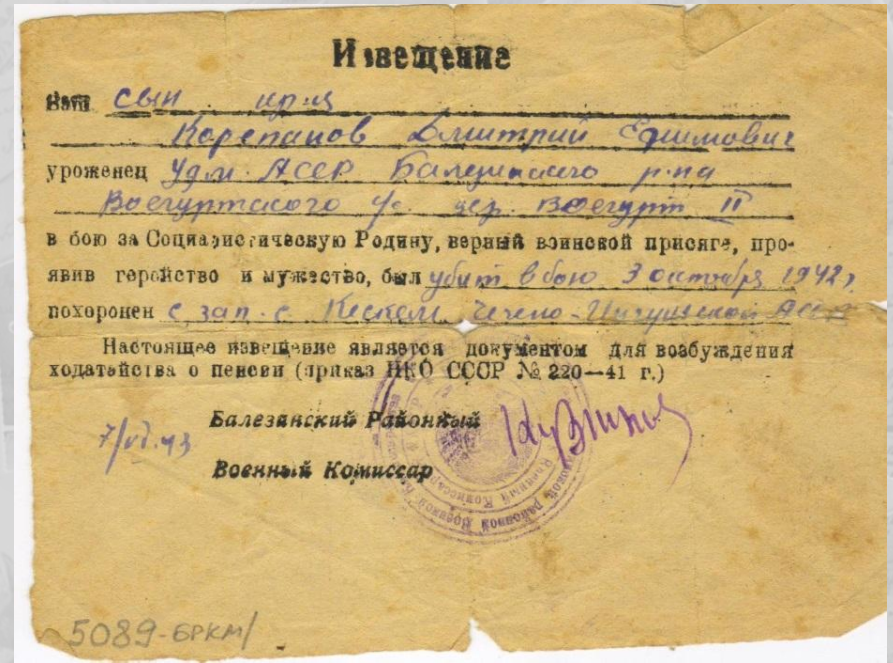 Извещение
Ваш сын кр-ц
Корепанов Дмитрий Ефимович
уроженец Удм. АССР Балезинского р-на
Воегуртского с/с дер. Воегурт II
в бою за Социалистическую Родину, верный воинской присяге, про-
явив геройство и мужество, был убит в бою 3 октября 1942 г.
похоронен с. зап. с. Кескем Чечено-Ингушской АССР
Настоящее извещение является документом для возбуждения
ходатайства о пенсии (приказ НКО СССР № 220—41 г.)
Балезинский Районный
Военный Комиссар
5089-БРКМ/